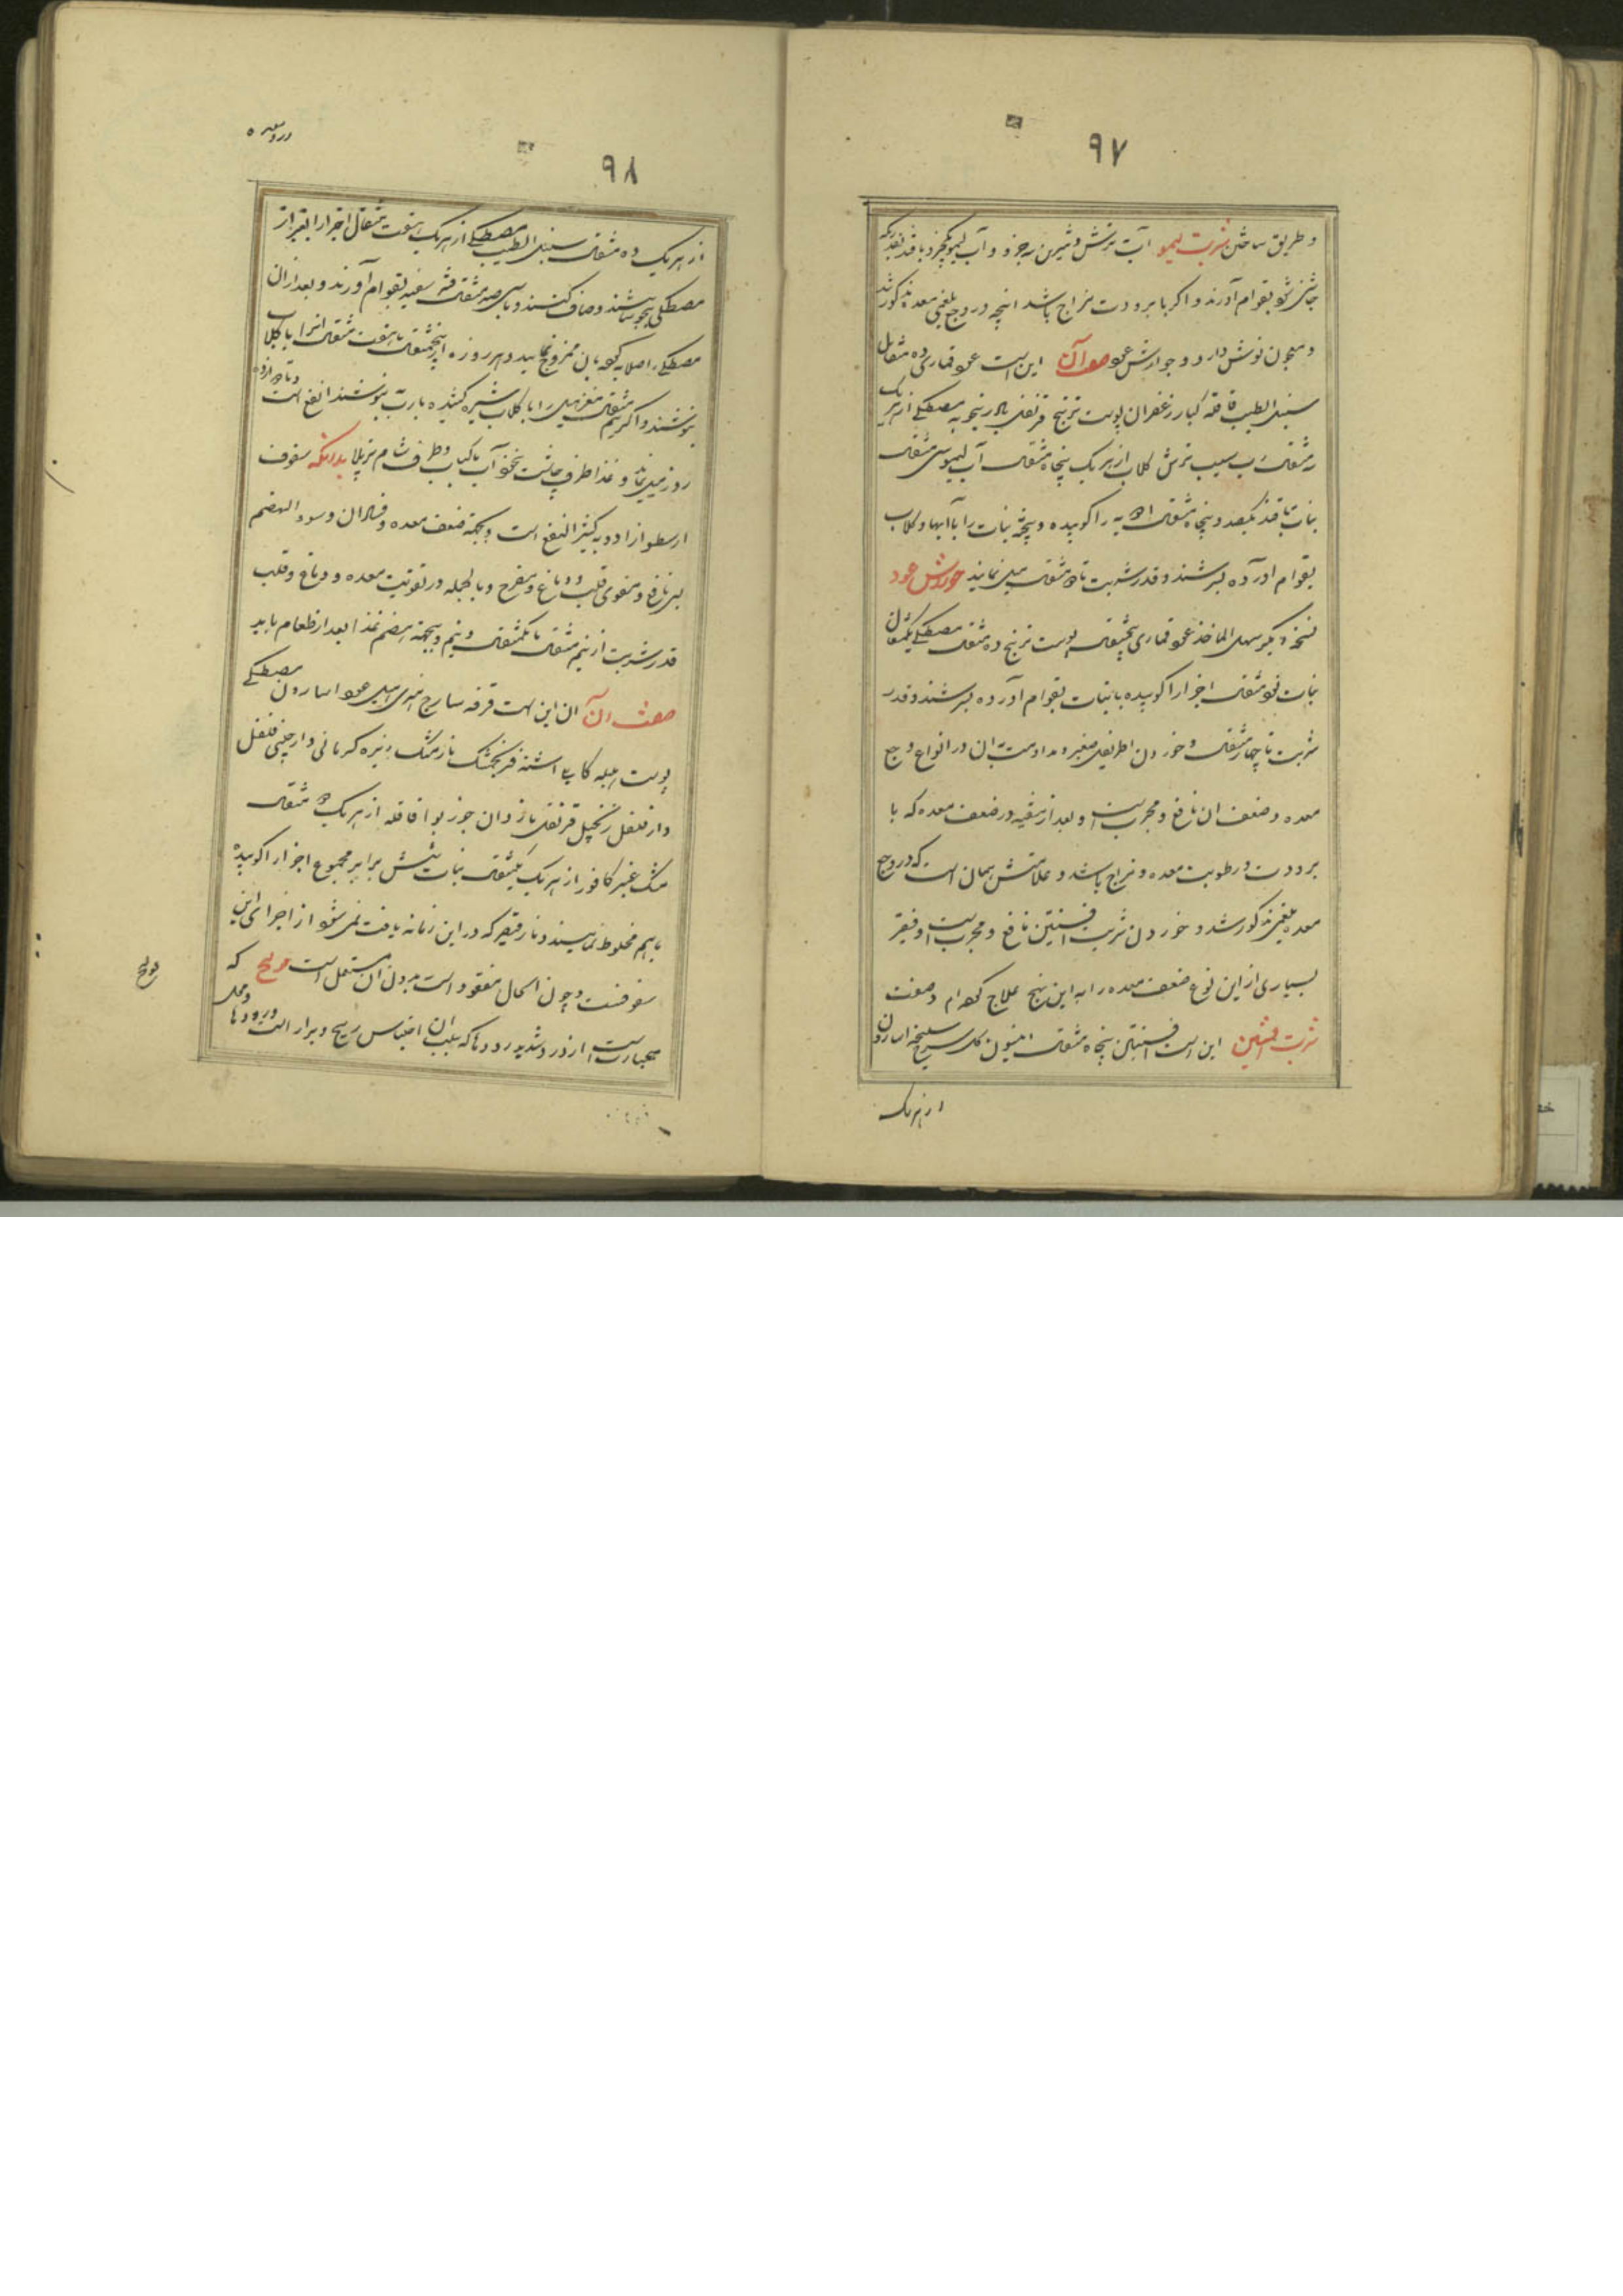 ۹۷
و طریق ساختن شربت لیمو آب ترش و شیرین سه جزو و آب لیمو یکجزو با قند بقدریکه
چاشنی شود بقوام آورند و اگر با برودت مزاج باشد انچه در وجع بلغمی معده مذکور شد
و معجون نوش دارو و جوارش عود صفت آن این است عود قماری ده مثقال
سنبل الطیب قاقله کبار زعفران پوست ترنج قرنفل بادرنجبویه مصطکی از هر یک
سه مثقال رب سیب ترش گلاب از هر یک پنجاه مثقال آب لیمو سی مثقال
نبات یا قند یکصد و پنجاه مثقال ادویه را کوبیده و پخته نبات را با آبها و گلاب
بقوام آورده بسرشند و قدر شربت تا دو مثقال میل نمایند جوارش عود
نسخه دیگر سهل الماخذ عود قماری پنجمثقال پوست ترنج ده مثقال مصطکی یکمثقال
نبات نود مثقال اجزا را کوبیده با نبات بقوام آورده بسرشند و قدر
شربت تا چهار مثقال و خوردن اطریفل صغیر و مداومت بان در انواع وجع
معده و ضعف ان نافع و مجرب است و بعد از تنقیه در ضعف معده که با
برودت و رطوبت معده و مزاج باشد و علامتش همان است که در وجع
معده بلغمی مذکور شد و خوردن شربت افسنتین نافع و مجرب است و فقیر
بسیاری از این نوع ضعف معده را به این نهج علاج کرده‌ام و صفت
شربت افسنتین این است افسنتین پنجاه مثقال انیسون گل سرخ سلیخه اسارون
از هر یک
در معده
۹۸
از هر یک ده مثقال سنبل الطیب مصطکی از هر یک هفت مثقال اجزا را بغیر از
مصطکی بجوشانند و صاف کنند و با سیصد مثقال قند سفید بقوام آورند و بعد از ان
مصطکی را صلایه کرده بان ممزوج نمایند و هر روزه از پنجمثقال تا هفت مثقال انرا با گلاب
بنوشند و اگر نیم مثقال مغز هیل را با گلاب شیره کشیده با رب بنوشند انفع است و تا دوازده
روز میل نمایند و غذا طرف چاشت نخود آب با کباب و طرف شام نرم پلا بدانکه سفوف
ارسطو از ادویه کثیر النفع است و بجهة ضعف معده و فساد ان و سوء الهضم
بس نافع و مقوی قلب و دماغ و مفرح و بالجمله در تقویت معده و دماغ و قلب
قدر شربت از نیم مثقال تا یکمثقال و نیم و بجهة هضم غذا بعد از طعام باید
صفت آن ان این است قرفه ساذج هندی هیل عود اسارون مصطکی
پوست هلیله کابلی اشنه فرنجمشک نارمشک زیره کرمانی دارچینی فلفل
دار فلفل زنجبیل قرنفل نازدان جوز بوا قاقله از هر یک دو مثقال
مشک عنبر کافور از هر یک یکمثقال نبات شش برابر مجموع اجزا را کوبیده
باهم مخلوط نمایند و نار قیصر که در این زمانه یافت نمی‌شود از اجزای این
سفوفست و چون الحال مفقود است بدون ان مستعمل است قولنج که
عبارتست از درد شدید روده‌ها که بسبب ان احتباس ریح و براز است و محل درد روده‌ها
قولنج